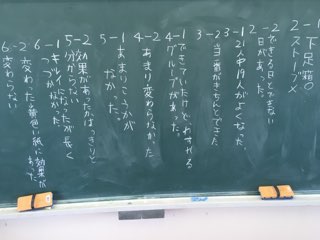 2-1 下足箱○
ストーブ×
2-2 できる日とできない
日があった。
3-1 21人中19人がよくなった。
3-2 当番がきちんとできた。
4-1 できていたけど、わすれる
グループがあった。
4-2 あまり変わらなかった
5-1 あまりこうかが
なかった。
5-2 効果があったかはっきりと
分からない
6-1 キレイになったが長く
つづかなかった
6-2 変わった 黄色い紙に効果が
あった。
変わらない